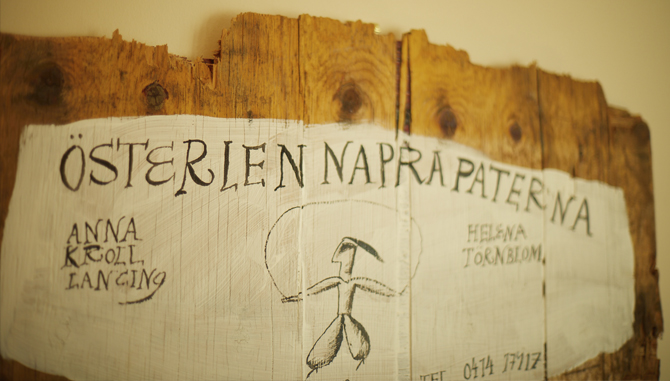 ÖSTERLEN NAPRAPATERNA
ANNA
KROLL
LANCING
HELENA
TÖRNBLOM
TEL 0414 17917